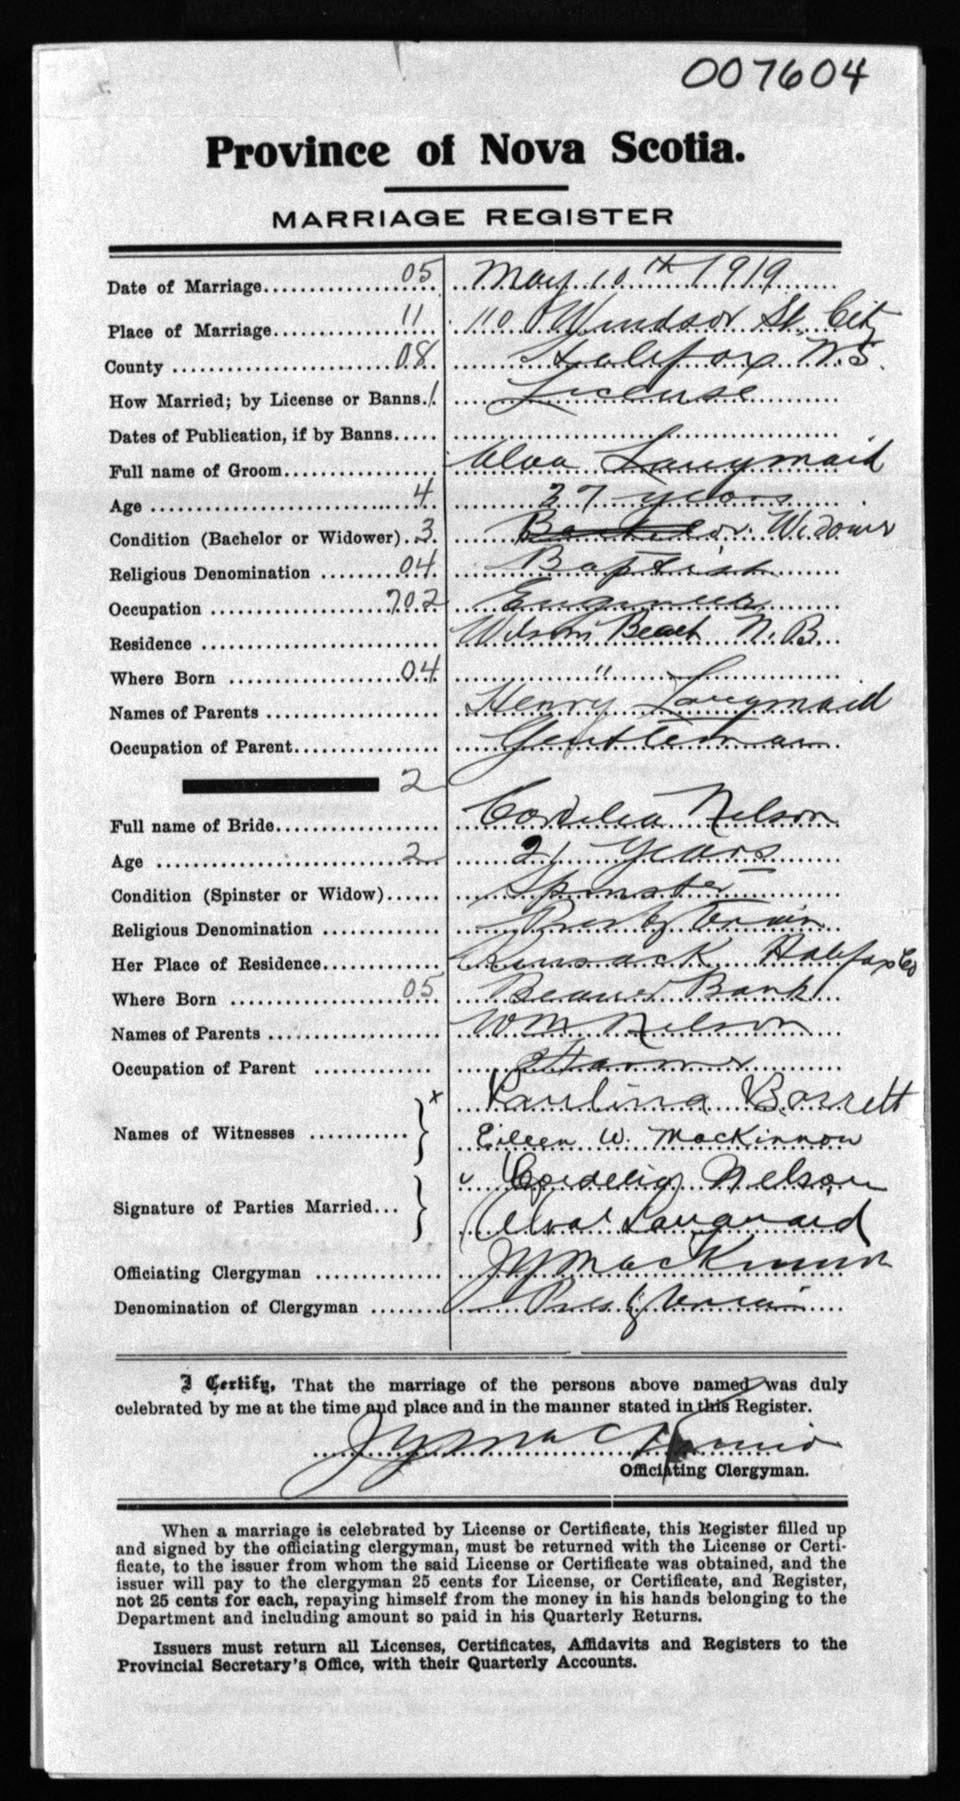 007604
Province of Nova Scotia.
MARRIAGE REGISTER
Date of Marriage 05 May 10th 1919
Place of Marriage 11 110 Windsor St. City
County 08 Halifax N.S.
How Married; by License or Banns. 1 License
Dates of Publication, if by Banns
Full name of Groom Alva Langmaid
Age 4 37 years
Condition (Bachelor or Widower) 3 Bachelor Widower
Religious Denomination 04 Baptist
Occupation 702 Engineer
Residence Wilson Beach N.B.
Where Born 04 "
Names of Parents Henry Langmaid
Occupation of Parent Gentleman
2
Full name of Bride Cordelia Nelson
Age 2 21 years
Condition (Spinster or Widow) Spinster
Religious Denomination Presbyterian
Her Place of Residence Kinsack Halifax Co
Where Born 05 Beaver Bank
Names of Parents Wm Nelson
Occupation of Parent Farmer
x Paulina Barrett
Names of Witnesses } Eileen W. MacKinnon
Cordelia Nelson
Signature of Parties Married } Alva Langmaid
Officiating Clergyman MacKinnon
Denomination of Clergyman Presbyterian
I Certify, That the marriage of the persons above named was duly
celebrated by me at the time and place and in the manner stated in this Register.
MacKinnon
Officiating Clergyman.
When a marriage is celebrated by License or Certificate, this Register filled up
and signed by the officiating clergyman, must be returned with the License or Certi-
ficate, to the issuer from whom the said License or Certificate was obtained, and the
issuer will pay to the clergyman 25 cents for License, or Certificate, and Register,
not 25 cents for each, repaying himself from the money in his hands belonging to the
Department and including amount so paid in his Quarterly Returns.
Issuers must return all Licenses, Certificates, Affidavits and Registers to the
Provincial Secretary's Office, with their Quarterly Accounts.